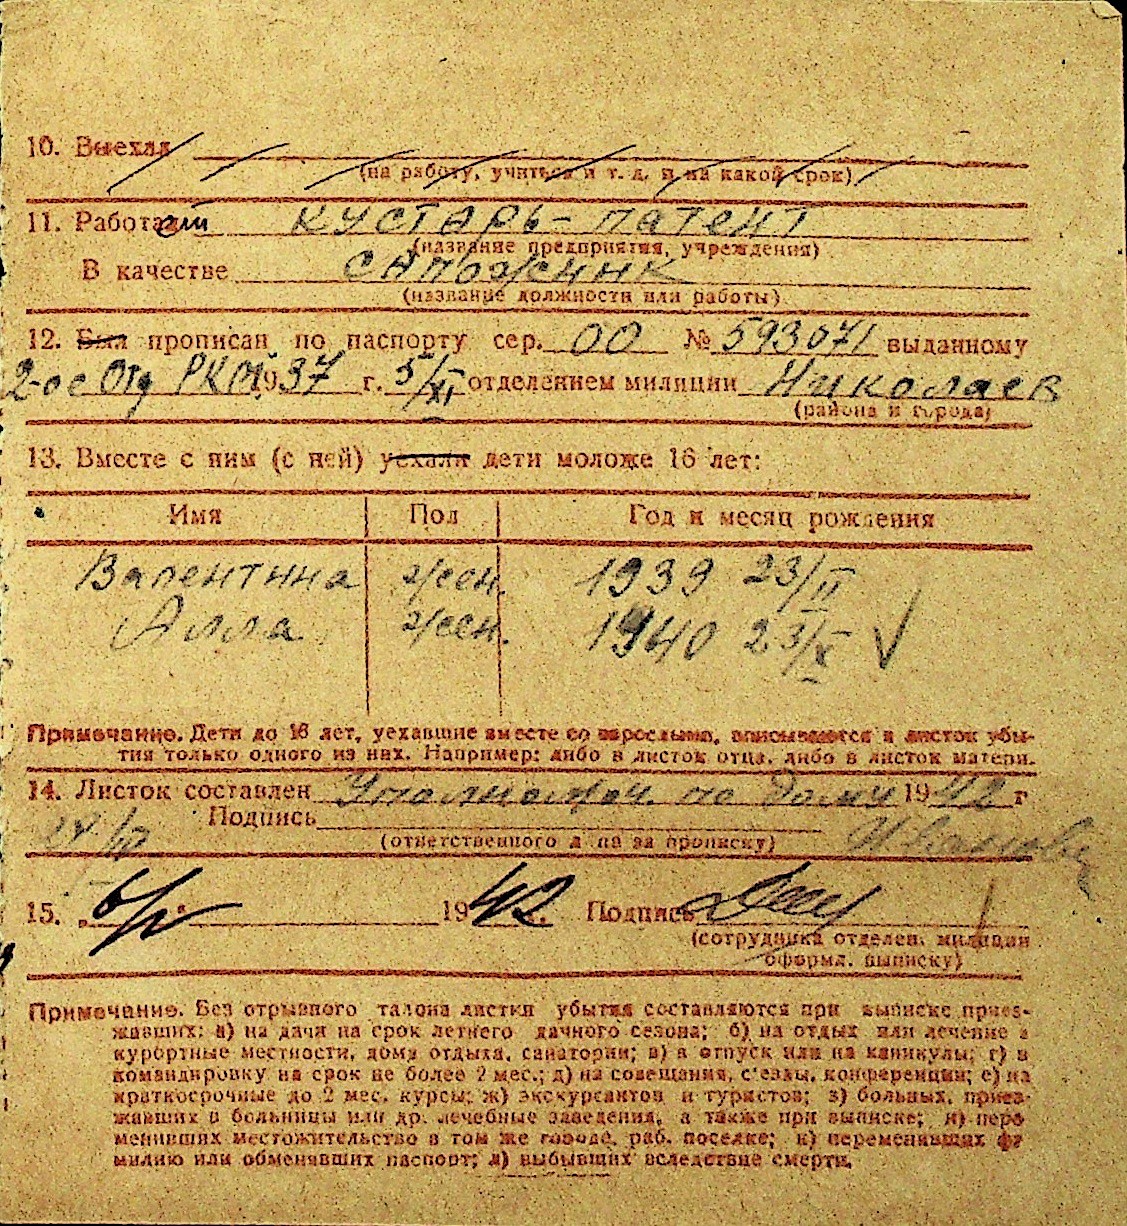 10. Выехал
(на работу, учиться и т. д. и на какой срок)
11. Работает кустарь-патент
(название предприятия, учреждения)
В качестве сапожник
(название должности или работы)
12. Был прописан по паспорту сер. 00 № 593071 выданному
2-ое Отд РКМ 1937 г. 5/XI отделением милиции Николаев
(района и города)
13. Вместе с ним (с ней) уехали дети моложе 16 лет:
Имя Пол Год и месяц рождения
Валентина жен. 1939 23/II
Алла жен. 1940 23/X
Примечание. Дети до 16 лет, уехавшие вместе со взрослыми, вписываются в листок убы-
тия только одного из них. Например: либо в листок отца, либо в листок матери.
14. Листок составлен Уполномоч. по дому 1942 г
Подпись
(ответственного л па за прописку)
15. 1942 г. Подпись
(сотрудника отделен. милиции
оформл. выписку)
Примечание. Без отрывного талона листки убытия составляются при выписке приез-
жавших: а) на дачи на срок летнего дачного сезона; б) на отдых или лечение в
курортные местности, дома отдыха, санатории; в) в отпуск или на каникулы; г) в
командировку на срок не более 2 мес.; д) на совещания, с'езды, конференции; е) на
краткосрочные до 2 мес. курсы; ж) экскурсантов и туристов; з) больных, приез-
жавших в больницы или др. лечебные заведения, а также при выписке; и) пере
менивших местожительство в том же городе, раб. поселке; к) переменивших фа
милию или обменявших паспорт; л) выбывших вследствие смерти.